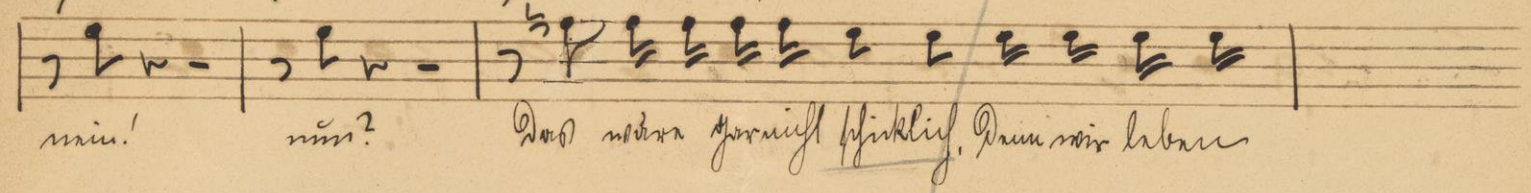 nein! nun? Das wäre gar nicht schicklich. Denn wir leben